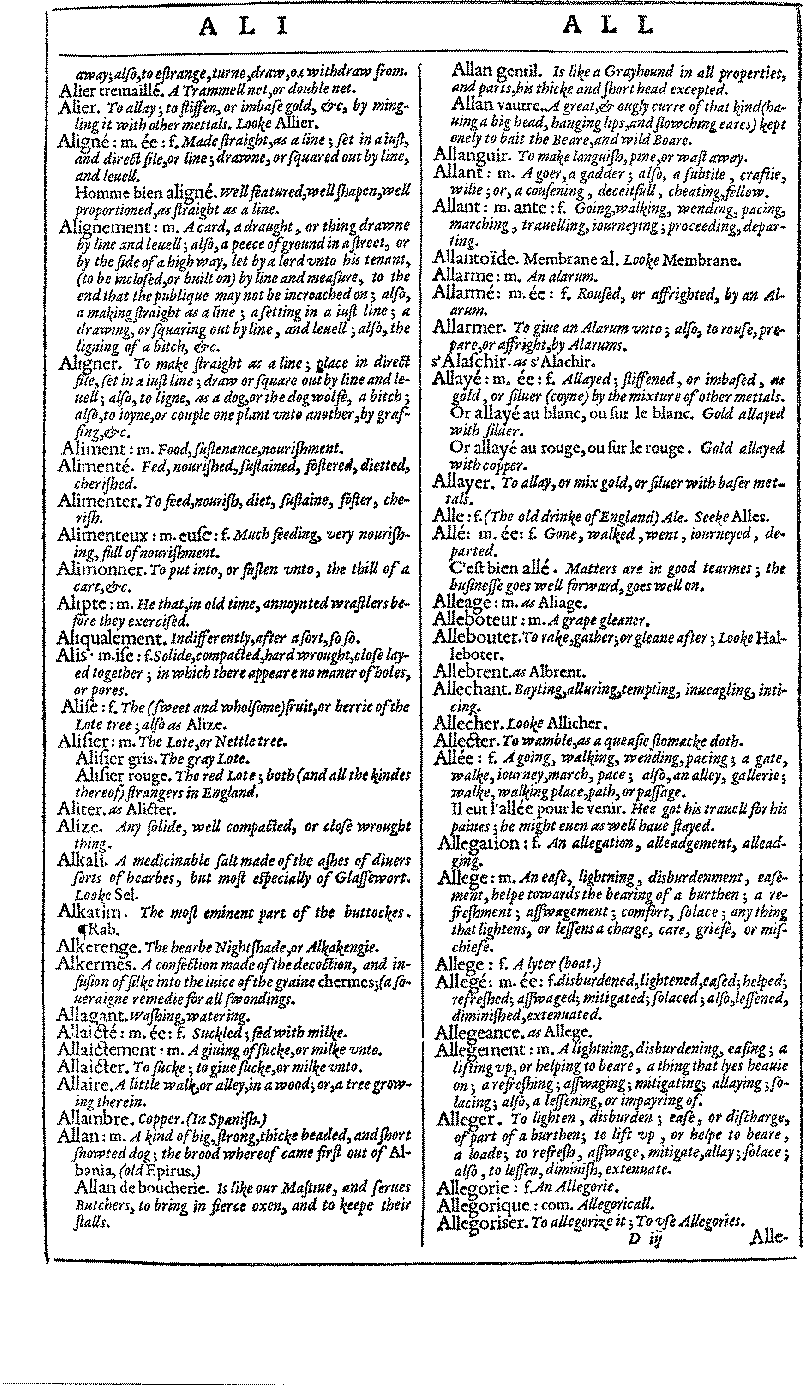 A L I
away; alſo, to eſtrange, turne, draw, or withdraw from.
Alier tremaillé. A Trammell net, or double net.
Alier. To allay; to ſtiffen, or imbaſe gold, &c, by ming-
ling it with other mettals. Looke Allier.
Aligné: m. ée: f. Made ſtraight, as a line; ſet in a iuſt,
and direct file, or line; drawne, or ſquared out by line,
and leuell.
Homme bien aligné. Well featured, well ſhapen, well
proportioned, as ſtraight as a line.
Alignement: m. A card, a draught, or thing drawne
by line and leuell; alſo, a peece of ground in a ſtreet, or
by the ſide of a high way, let by a lord vnto his tenant,
(to be incloſed, or built on) by line and meaſure, to the
end that the publique may not be incroached on; alſo,
a making ſtraight as a line; a ſetting in a iuſt line; a
drawing, or ſquaring out by line, and leuell; alſo, the
ligning of a bitch, &c.
Aligner. To make ſtraight as a line; place in direct
file, ſet in a iuſt line; draw or ſquare out by line and le-
uell; alſo, to ligne, as a dog, or the dog wolfe, a bitch;
alſo, to ioyne, or couple one plant vnto another, by graf-
fing, &c.
Aliment: m. Food, ſuſtenance, nouriſhment.
Alimenté. Fed, nouriſhed, ſuſtained, foſtered, dietted,
cheriſhed.
Alimenter. To feed, nouriſh, diet, ſuſtaine, foſter, che-
riſh.
Alimenteux: m. euſe: f. Much feeding, very nouriſh-
ing, full of nouriſhment.
Alimonner. To put into, or faſten vnto, the thill of a
cart, &c.
Alipte: m. He that, in old time, annoynted wraſtlers be-
fore they exerciſed.
Aliqualement. Indifferently, after a ſort, ſo ſo.
Alis: m. iſe: f. Solide, compacted, hard wrought, cloſe lay-
ed together; in which there appeare no maner of holes,
or pores.
Aliſe: f. The (ſweet and wholſome) fruit, or berrie of the
Lote tree; alſo as Alize.
Aliſier: m. The Lote, or Nettle tree.
Aliſier gris. The gray Lote.
Aliſier rouge. The red Lote; both (and all the kindes
thereof) ſtrangers in England.
Aliter. as Alicter.
Alize. Any ſolide, well compacted, or cloſe wrought
thing.
Alkali. A medicinable ſalt made of the aſhes of diuers
ſorts of hearbes, but moſt eſpecially of Glaſſewort.
Looke Sel.
Alkatim. The moſt eminent part of the buttockes.
¶Rab.
Alkerenge. The hearbe Nightſhade, or Alkakengie.
Alkermes. A confection made of the decoction, and in-
fuſion of ſilke into the iuice of the graine chermes; (a ſo-
ueraigne remedie for all ſwondings.
Allagant. Waſhing, watering.
Allaicté: m. ée: f. Suckled; fed with milke.
Allaictement: m. A giuing of ſucke, or milke vnto.
Allaicter. To ſucke; to giue ſucke, or milke vnto.
Allaire. A little walk, or alley, in a wood; or, a tree grow-
ing therein.
Allambre. Copper. (In Spaniſh.)
Allan: m. A kind of big, ſtrong, thicke headed, and ſhort
ſnowted dog; the brood whereof came firſt out of Al-
bania, (old Epirus.)
Allan de boucherie. Is like our Maſtiue, and ſerues
Butchers, to bring in fierce oxen, and to keepe their
ſtalls.
A L L
Allan gentil. Is like a Grayhound in all properties,
and parts, his thicke and ſhort head excepted.
Allan vautre. A great, & ougly curre of that kind (ha-
uing a big head, hanging lips, and ſlowching eares) kept
onely to bait the Beare, and wild Boare.
Allanguir. To make languiſh, pine, or waſt away.
Allant: m. A goer, a gadder; alſo, a ſubtile, craftie,
wilie; or, a couſening, deceitfull, cheating, fellow.
Allant: m. ante: f. Going, walking, wending, pacing,
marching, trauelling, iourneying; proceeding, depar-
ting.
Allantoïde. Membrane al. Looke Membrane.
Allarme: m. An alarum.
Allarmé: m. ée: f. Rouſed, or affrighted, by an Al-
arum.
Allarmer. To giue an Alarum vnto; alſo, to rouſe, pre-
pare, or affright, by Alarums.
s'Alaſchir. as s'Alachir.
Allayé: m. ée: f. Allayed; ſtiffened, or imbaſed, as
gold, or ſiluer (coyne) by the mixture of other mettals.
Or allayé au blanc, ou ſur le blanc. Gold allayed
with ſilder.
Or allayé au rouge, ou ſur le rouge. Gold allayed
with copper.
Allayer. To allay, or mix gold, or ſiluer with baſer met-
tals.
Alle: f. (The old drinke of England) Ale. Seeke Alles.
Allé: m. ée: f. Gone, walked, went, iourneyed, de-
parted.
C'eſt bien allé. Matters are in good tearmes; the
buſineſſe goes well forward, goes well on.
Alleage: m. as Aliage.
Alleboteur: m. A grape gleaner.
Allebouter. To rake, gather, or gleane after; Looke Hal-
leboter.
Allebrent. as Albrent.
Allechant. Bayting, alluring, tempting, inueagling, inti-
cing.
Allecher. Looke Allicher.
Allecter. To wamble, as a queaſie ſtomacke doth.
Allée: f. A going, walking, wending, pacing; a gate,
walke, iourney, march, pace; alſo, an alley, gallerie;
walke, walking place, path, or paſſage.
Il eut l'allée pour le venir. Hee got his trauell for his
paines; he might euen as well haue ſtayed.
Allegation: f. An allegation, alleadgement, allead-
ging.
Allege: m. An eaſe, lightning, disburdenment, eaſe-
ment, helpe towards the bearing of a burthen; a re-
freſhment; aſſwagement; comfort, ſolace; any thing
that lightens, or leſſens a charge, care, griefe, or miſ-
chiefe.
Allege: f. A lyter (boat.)
Allegé: m. ée: f. disburdened, lightened, eaſed; helped;
refreſhed; aſſwaged; mitigated; ſolaced; alſo, leſſened,
diminiſhed, extenuated.
Allegeance. as Allege.
Allegement: m. A lightning, disburdening, eaſing; a
lifting vp, or helping to beare, a thing that lyes heauie
on; a refreſhing; aſſwaging; mitigating; allaying; ſo-
lacing; alſo, a leſſening, or impayring of.
Alleger. To lighten, disburden; eaſe, or diſcharge,
of part of a burthen; to lift vp, or helpe to beare,
a loade; to refreſh, aſſwage, mitigate, allay; ſolace;
alſo, to leſſen, diminiſh, extenuate.
Allegorie: f. An Allegorie.
Allegorique: com. Allegoricall.
Allegoriser. To allegorize it; To vſe Allegories.
D iij Alle-